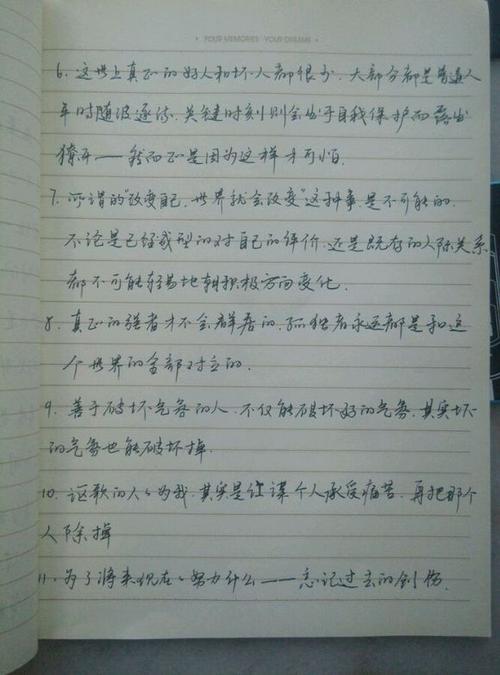 YOUR MEMORIES · YOUR DREAMS
6. 这世上真正的好人和坏人都很少. 大部分都是普通人
平时随波逐流. 关键时刻则会出于自我保护而露出
獠牙——然而正是因为这样才可怕.
7. 所谓的“改变自己, 世界就会改变”这种事. 是不可能的.
不论是已经成型的对自己的评价. 还是既存的人际关系
都不可能轻易地朝积极方向变化.
8. 真正的强者才不会群居的. 孤独者永远都是和这
个世界的全部对立的.
9. 善于破坏气氛的人. 不仅能破坏好的气氛. 其实坏
的气氛也能破坏掉.
10. 讴歌的人人为我. 其实是让某个人承受痛苦. 再把那个
人除掉
11. 为了将来现在努力什么——忘记过去的创伤.